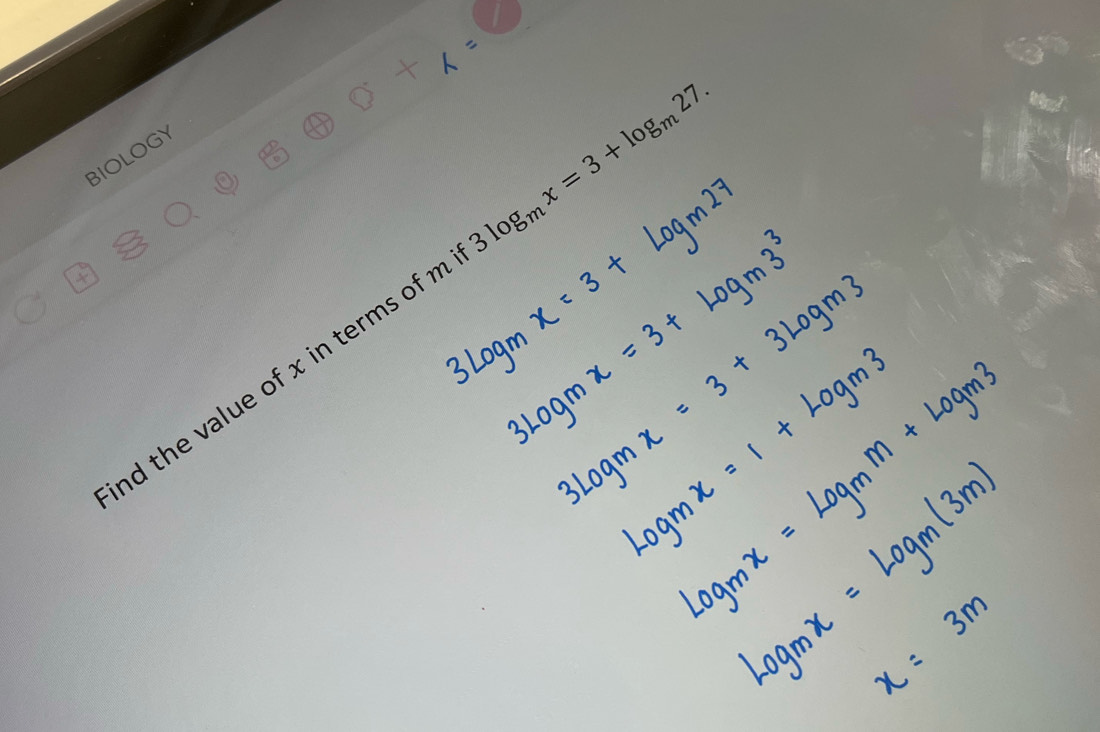 BIOLOGY
Find the value of x in terms of m if 3 logₘ x = 3 + logₘ 27.
3 Logm x = 3 + Logm 27
3 Logm x = 3 + Logm 3³
3 Logm x = 3 + 3 Logm 3
Logm x = 1 + Logm 3
Logm x = Logm m + Logm 3
Logm x = Logm (3m)
x = 3m